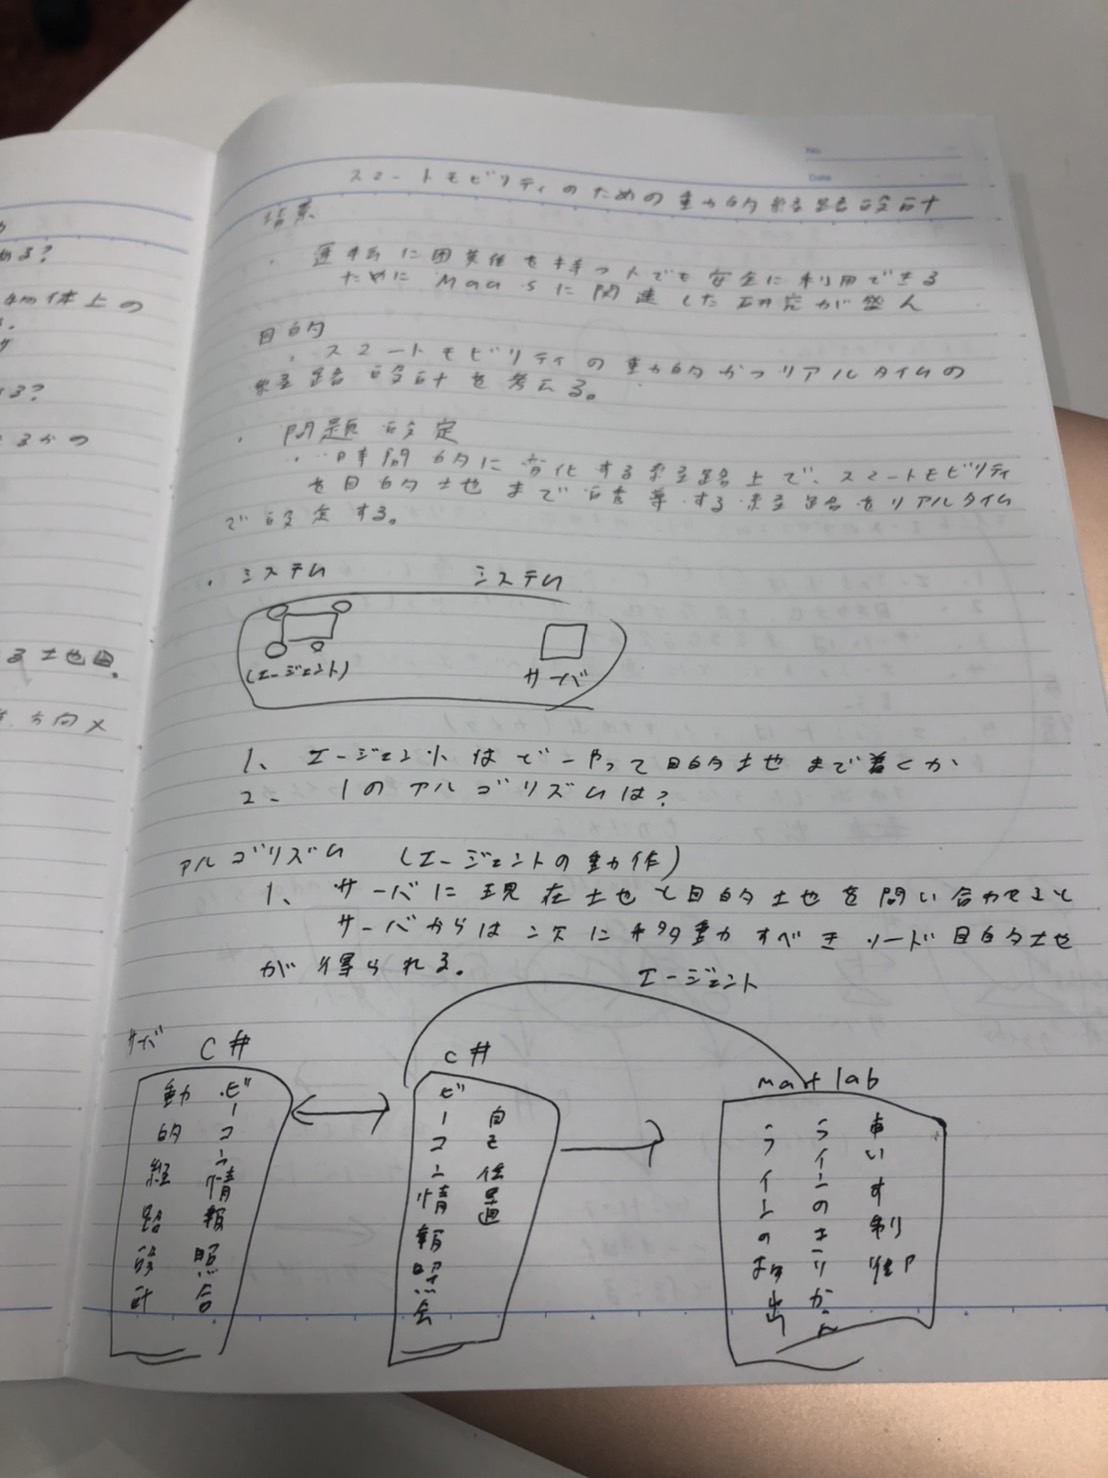 No.
Date
スマートモビリティのための動的経路設計
背景
・運転に困難性を持つ人でも安全に利用できる
ために MaaSに関連した研究が盛ん
目的
・スマートモビリティの動的かつリアルタイムの
経路設計を考える。
・問題設定
・時間的に変化する経路上で、スマートモビリティ
を目的地まで誘導する経路をリアルタイム
で設定する。
・システム システム
(エージェント) サーバ
1、エージェントはどーやって目的地まで着くか
2、1のアルゴリズムは?
アルゴリズム (エージェントの動作)
1、サーバに現在地と目的地を問い合わせると
サーバからは次に移動すべきノード目的地
が得られる。
エージェント
サーバ C#
ビーコン情報照合
動的経路設計
C#
ビーコン情報照会
matlab
車いす制御
ラインの
ラインの抽出
ある?
体上の
ある?
るかの
る土地図。
方向メ